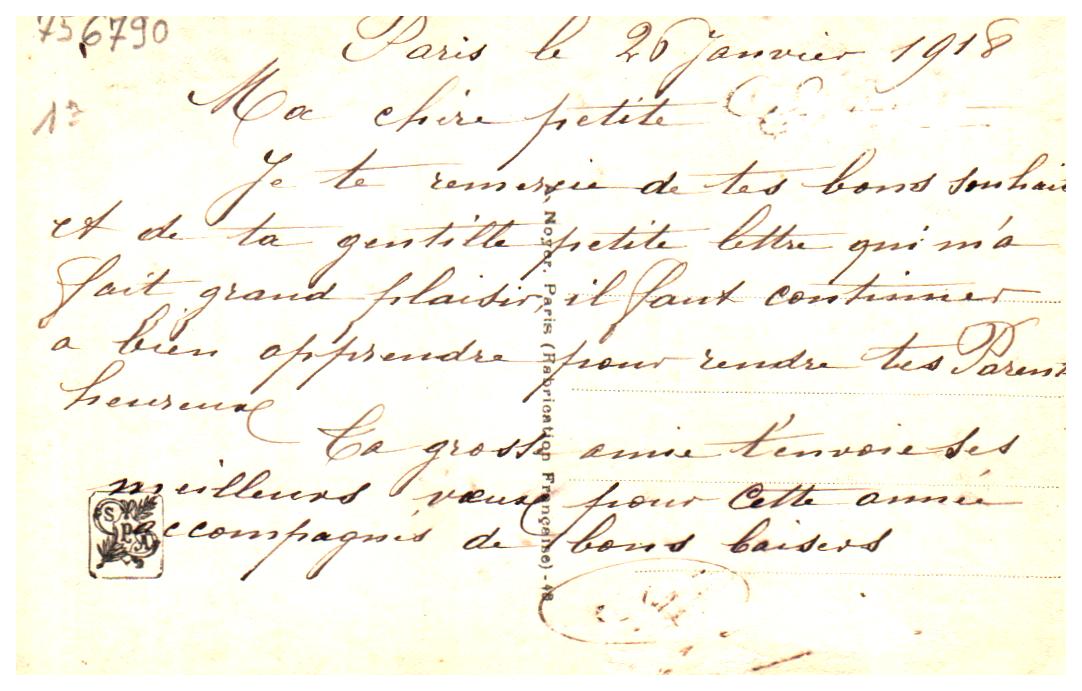 756790
Paris le 26 Janvier 1918
13
Ma chère petite
Je te remercie de tes bons souhai
et de ta gentille petite lettre qui m'a
fait grand plaisir, il faut continuer
a bien apprendre pour rendre tes Parent
heureux
Ta grosse amie t'envoie ses
meilleurs vœux pour cette année
accompagnés de bons baisers
SPA
A. Noyer. Paris (Fabrication Française) - 48